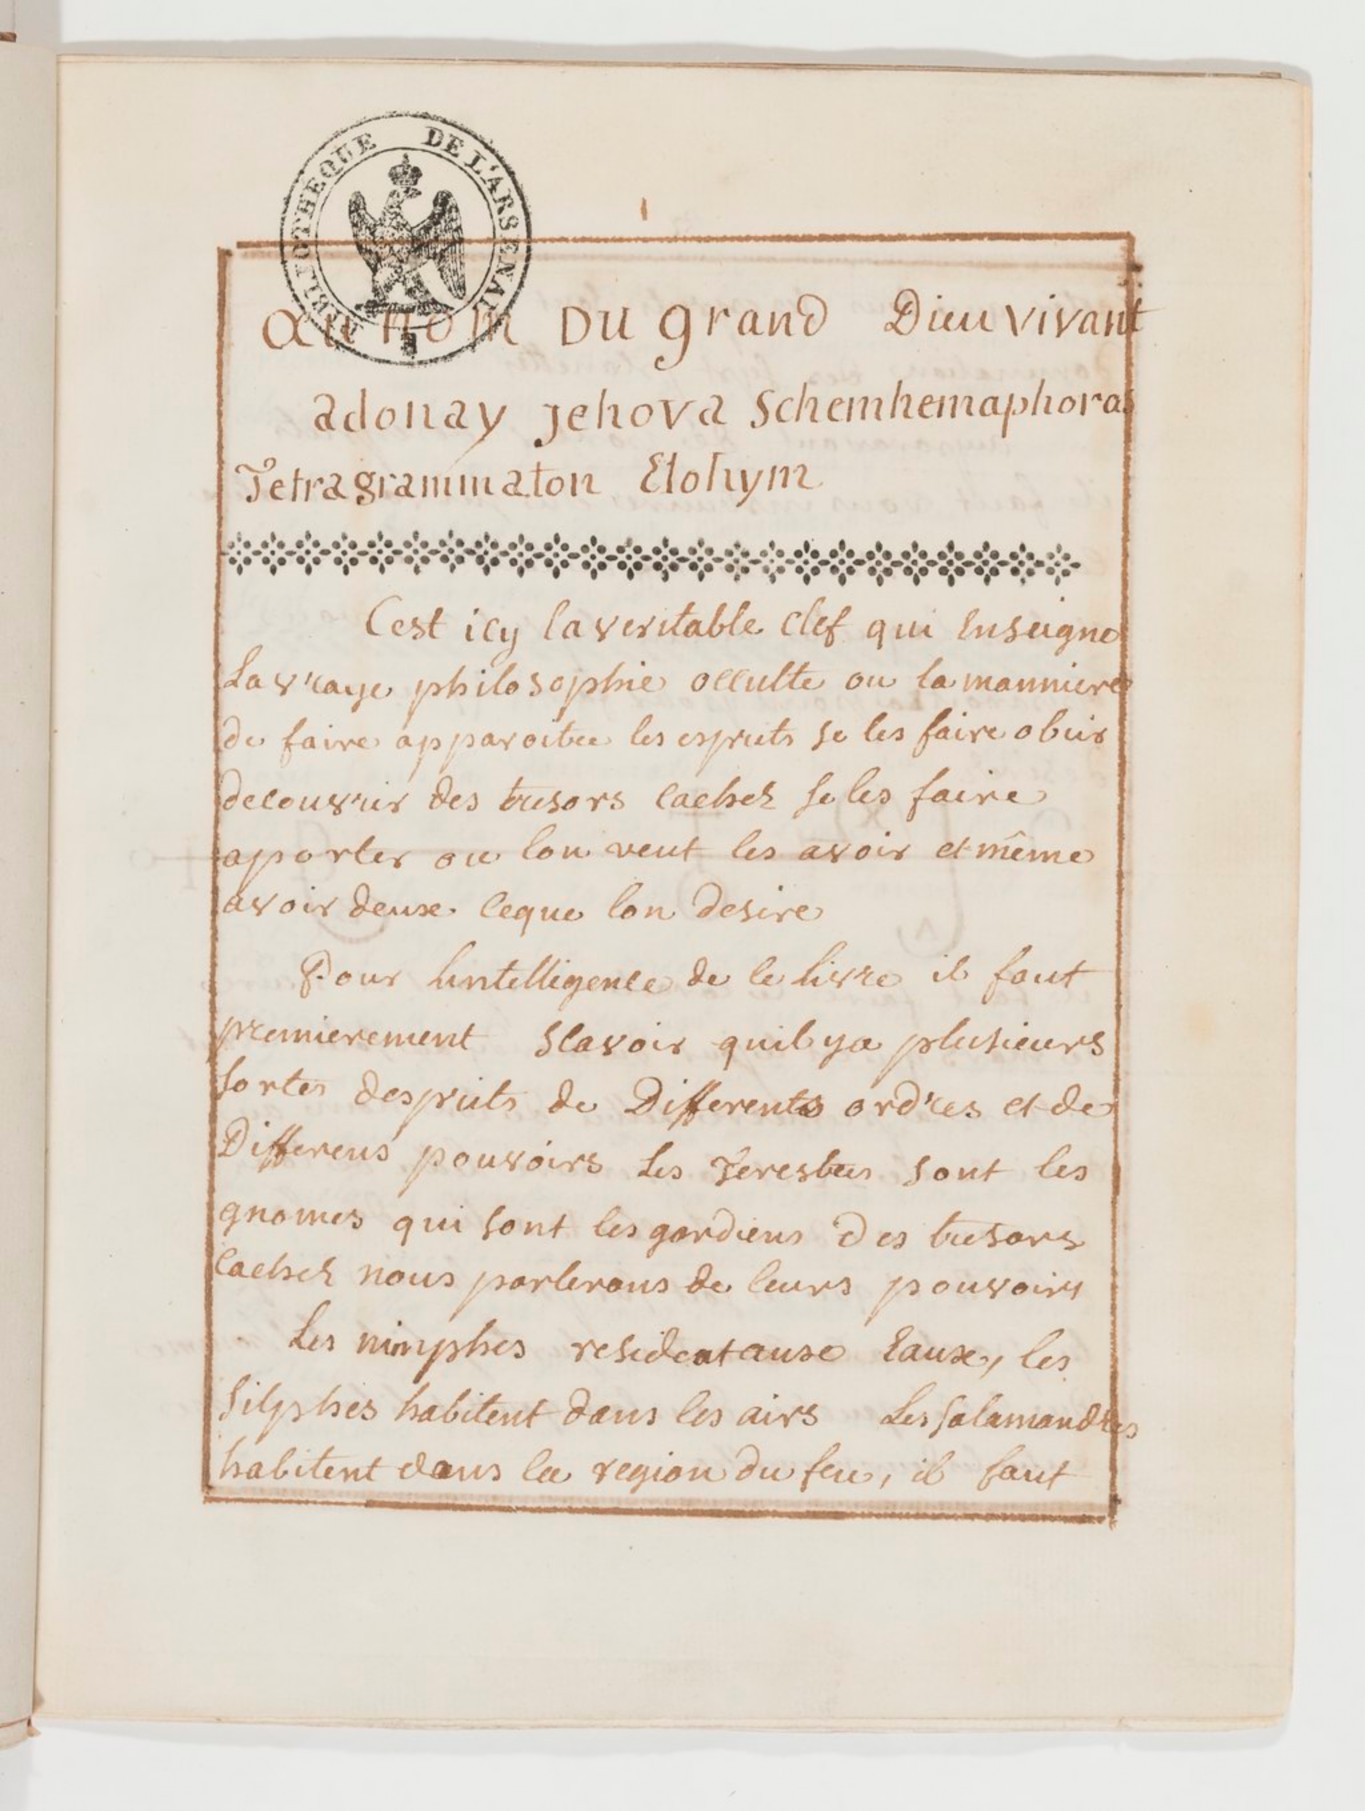 BIBLIOTHEQUE DE L'ARSENAL
au nom Du grand Dieu vivant
adonay Jehova Schemhemaphoras
Tetragrammaton Elohym
Cest icy la veritable clef qui Enseigne
La vraye philosophie occulte ou la manniere
de faire apparoitre les esprits se les faire obeir
decouvrir des tresors cachez se les faire
aporter ou lon veut les avoir et même
avoir deux ceque lon desire
Pour lintelligence de ce livre il faut
premierement scavoir quil ya plusieurs
sortes desprits de Differents ordres et de
Differens pouvoirs Les Terestres sont les
gnomes qui sont les gardiens Des tresors
cachez nous parlerons de leurs pouvoirs
Les nimphes resident aux Eaux, les
Silphes habitent dans les airs Les Salamandres
habitent dans la region du feu, il faut